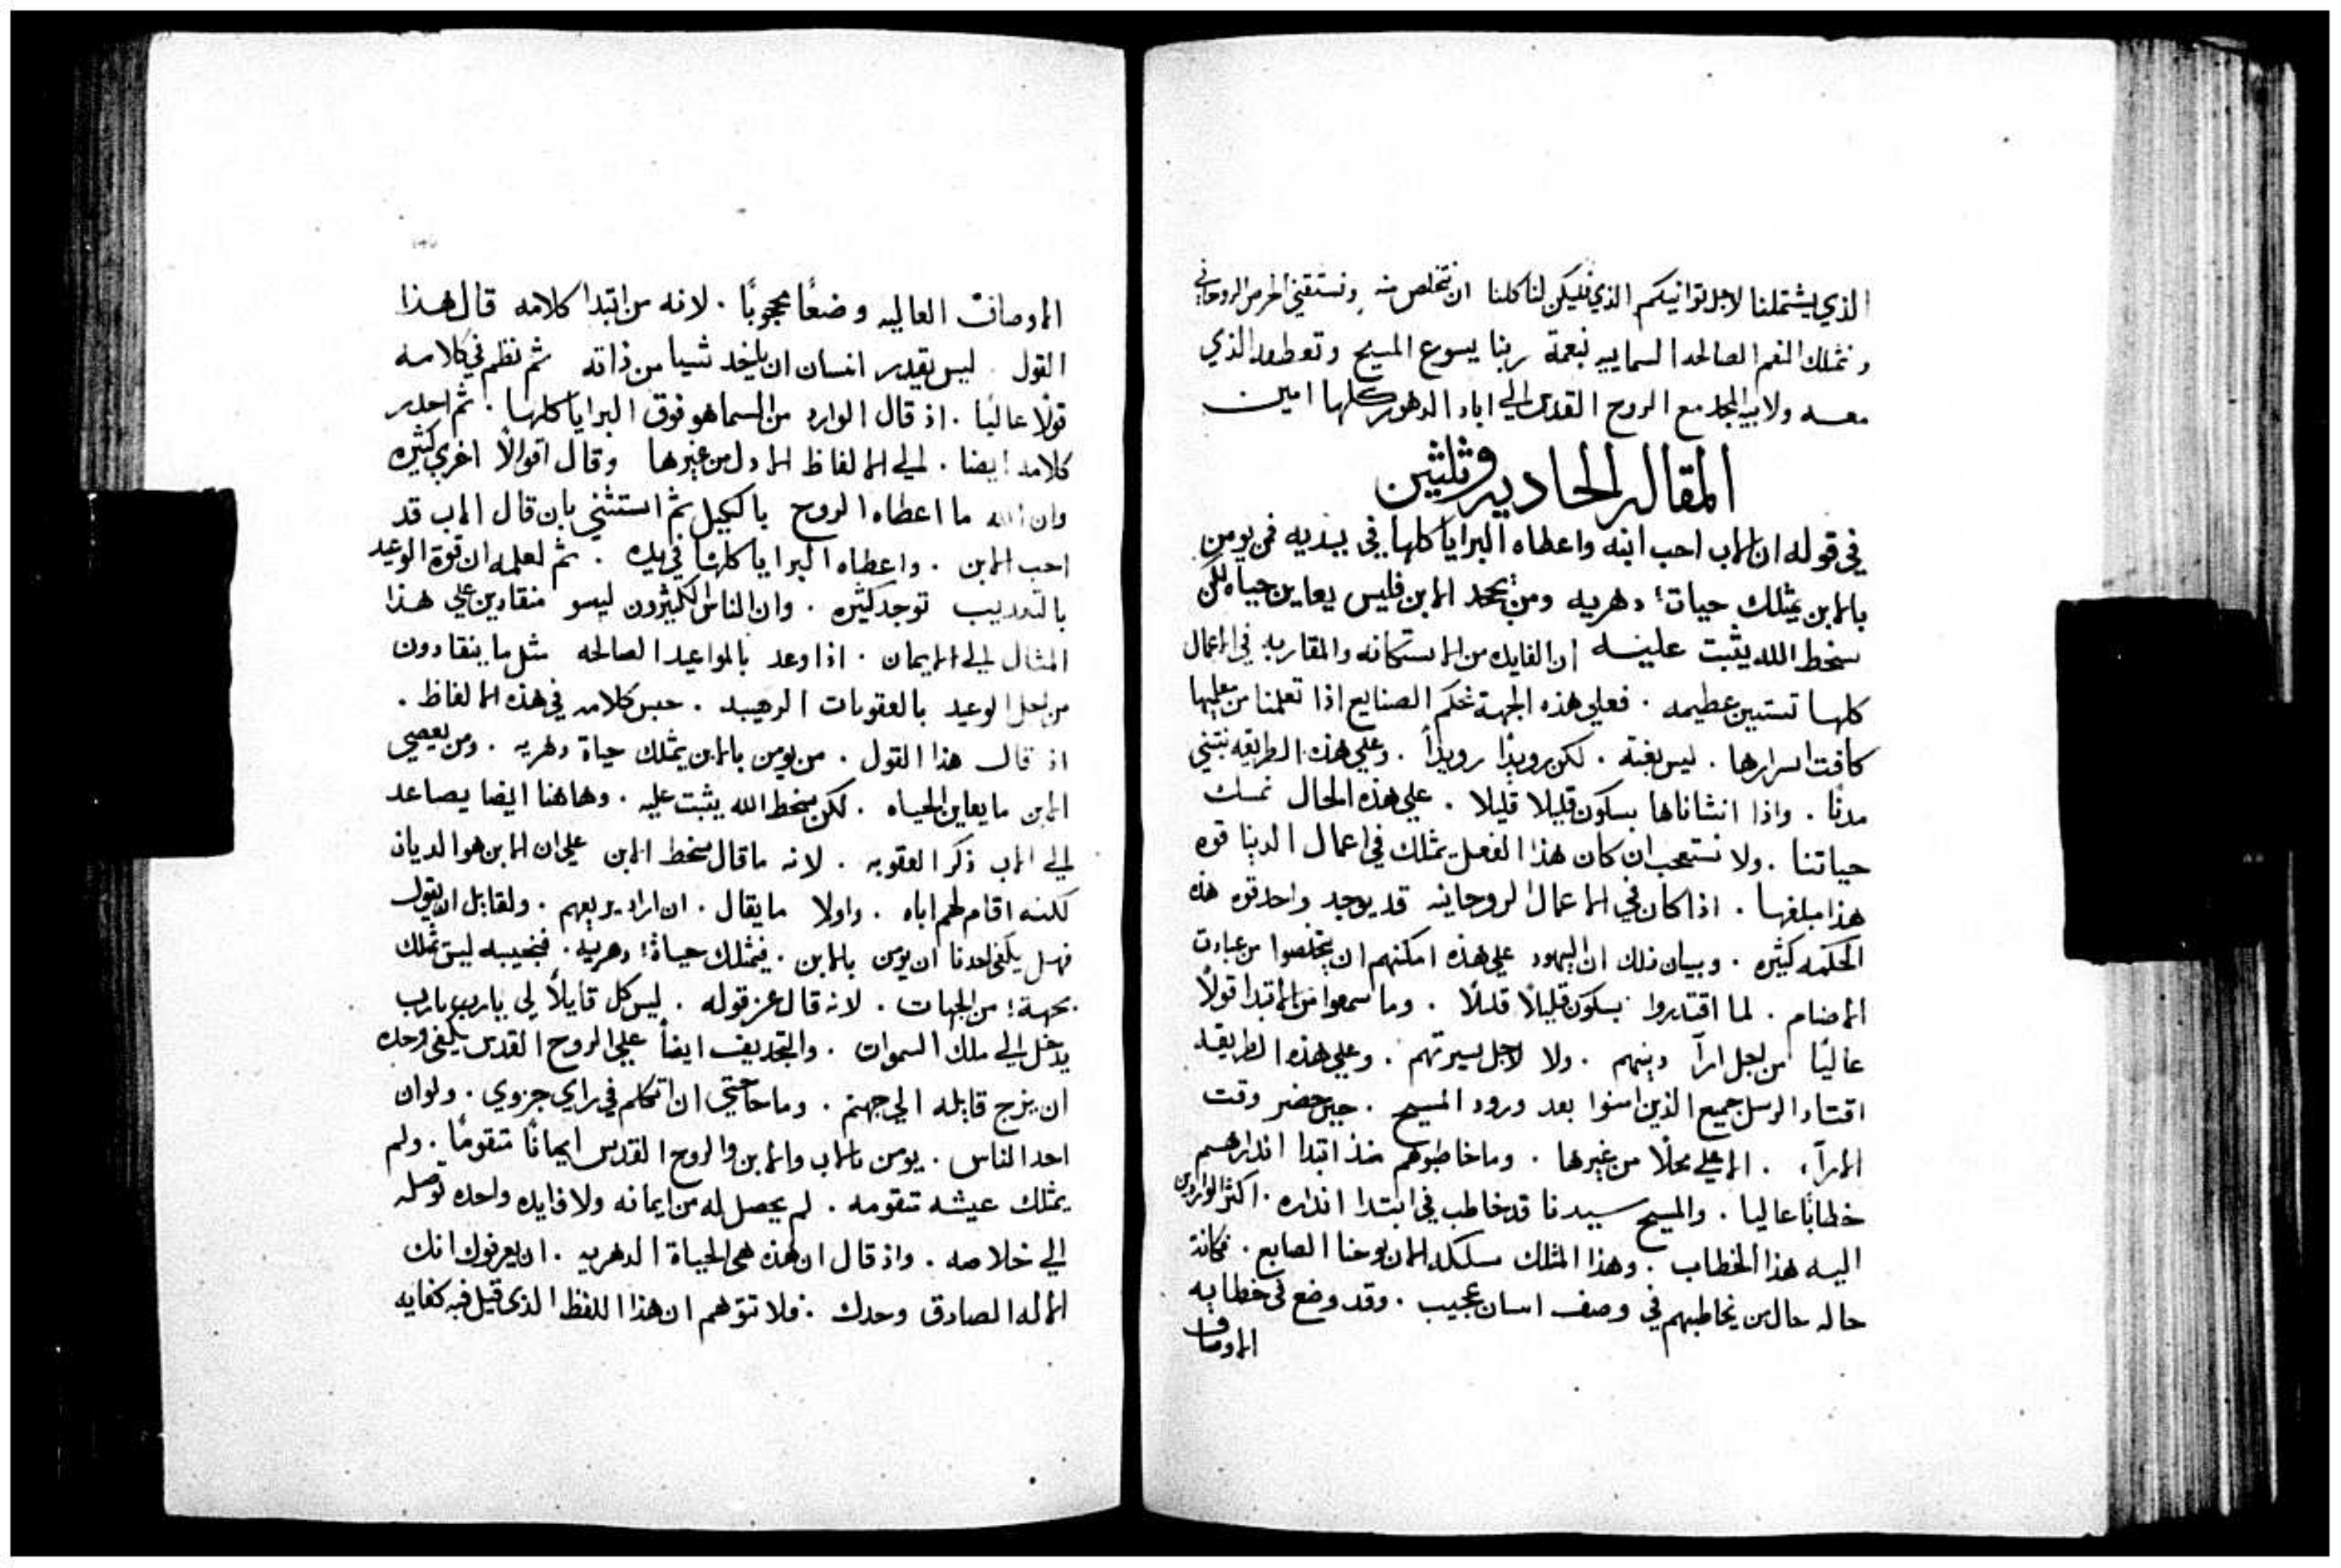 الذي يشتملنا لاجل توانيكم الذي فليكن لنا كلنا ان نتخلص منه ونستقني الحرص الروحاني
ونمتلك النعم الصالحه السماييه بنعمة ربنا يسوع المسيح وتعطفه الذي
معه ولابيه المجد مع الروح القدس الي اباد الدهور كلها امين
المقاله الحاديه وثلثين
في قوله ان الاب احب ابنه واعطاه البرايا كلها في يديه فمن يومن
بالابن يمتلك حياتا دهريه ومن يجحد الابن فليس يعاين حياه لكن
سخط الله يثبت عليه ان الفايده من الاستكانه والمقاربه في الاعمال
كلها تستبين عظيمه . فعلي هذه الجهة نحكم الصنايع اذا تعلمنا من معلميها
كافت اسرارها . ليس بغتة . لكن رويدًا رويدًا . وعلي هذه الطريقه نبتني
مدنًا . واذا انشاناها بسكون قليلا قليلا . علي هذه الحال نمسك
حياتنا . ولا نستعجب ان كان هذا الفعل يمتلك في اعمال الدنيا قوه
هذا مبلغها . اذا كان في الاعمال الروحانيه قد يوجد واحد قوه هذه
الحكمه كثيره . وبيان ذلك ان اليهود علي هذه امكنهم ان يتخلصوا من عبادت
الاصنام . لما اقتديروا بسكون قليلًا قللًا . وما سمعوا من الابتدا قولًا
عاليًا من اجل ارآ دينهم . ولا لاجل سيرتهم . وعلي هذه الطريقه
اقتاد الرسل جميع الذين امنوا بعد ورود المسيح . حين حضر وقت
الارآء . الاعلي محلًا من غيرها . وما خاطبوهم منذ ابتدا انذارهم
خطابًا عاليا . والمسيح سيدنا قد خاطب في ابتدا انذاره . اكثر الواردين
اليه هذا الخطاب . وهذا المثلك سلكه الان يوحنا الصابغ . فكانة
حاله حال من يخاطبهم في وصف انسان عجيب . وقد وضع في خطابه
الاوصاف
الاوصافْ العاليه وضعًا محجوبًا . لانه من ابتدا كلامه قال هذا
القول . ليس يقدر انسان ان ياخد شيا من ذاته ثم نظم في كلامه
قولًا عاليًا . اذ قال الوارد من السما هو فوق البرايا كلها . ثم احدر
كلامه ايضا . الي الالفاظ الادل من غيرها وقال اقوالًا اخري كثيره
وان الله ما اعطاه الروح بالكيل ثم استثني بان قال الاب قد
احب الابن . واعطاه البرايا كلها في يده . ثم لعلمه ان قوة الوعيد
بالتعديب توجد كثيره . وان الناس الكثيرون ليسو منقادين علي هذا
المثال الي الايمان . اذا وعد بالمواعيد الصالحه مثل ما ينقادون
من اجل الوعيد بالعقوبات الرهيبه . حبس كلامه في هذه الالفاظ .
اذ قال هذا القول . من يومن بالابن يمتلك حياة دهريه . ومن يعصي
الابن ما يعاين الحياه . لكن سخط الله يثبت عليه . وهاهنا ايضا يصاعد
الي الاب ذكر العقوبه . لانه ما قال سخط الابن علي ان الابن هو الديان
لكنه اقام لهم اباه . واولا ما يقال . ان اراد يربعهم . ولقايل ان يقول
فهل يكفي احدنا ان يومن بالابن . فيمتلك حياةً دهريه . فنجيبه ليس تملك
بجهةٍ من الجهات . لانه قال عز قوله . ليس كل قايلًا لي يارب يارب
يدخل الي ملك السموات . والتجديف ايضًا علي الروح القدس يكفي وحده
ان يزج قابله الي جهنم . وما حاجتي ان اتكلم في راي جزوي . ولو ان
احد الناس . يومن بالاب والابن والروح القدس ايمانًا متقومًا . ولم
يمتلك عيشه متقومه . لم يحصل له من ايمانه ولا فايده واحده توصله
الي خلاصه . واذ قال ان هذه هي الحياة الدهريه . ان يعرفوك انك
الاله الصادق وحدك . فلا نتوهم ان هذا اللفظ الذي قيل فيه كفايه